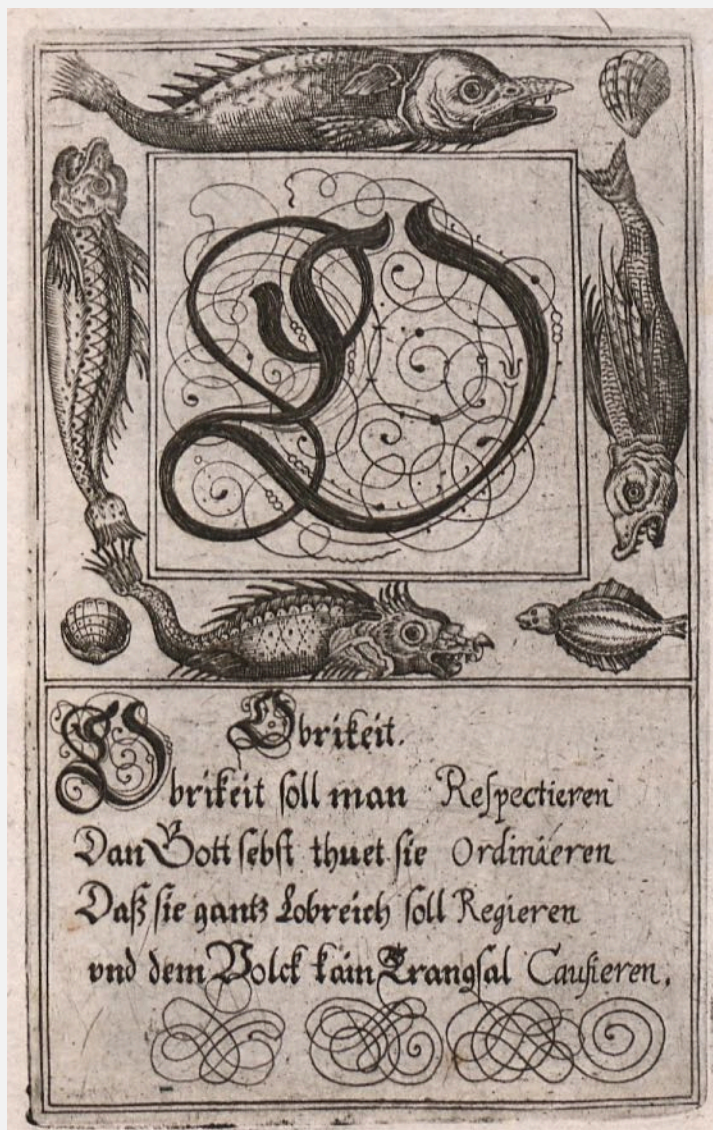 O
Obrikeit.
Obrikeit soll man Respectieren
Dan Gott sebst thuet sie Ordinieren
Daß sie gantz Lobreich soll Regieren
vnd dem Volck kain Trangsal Causieren.